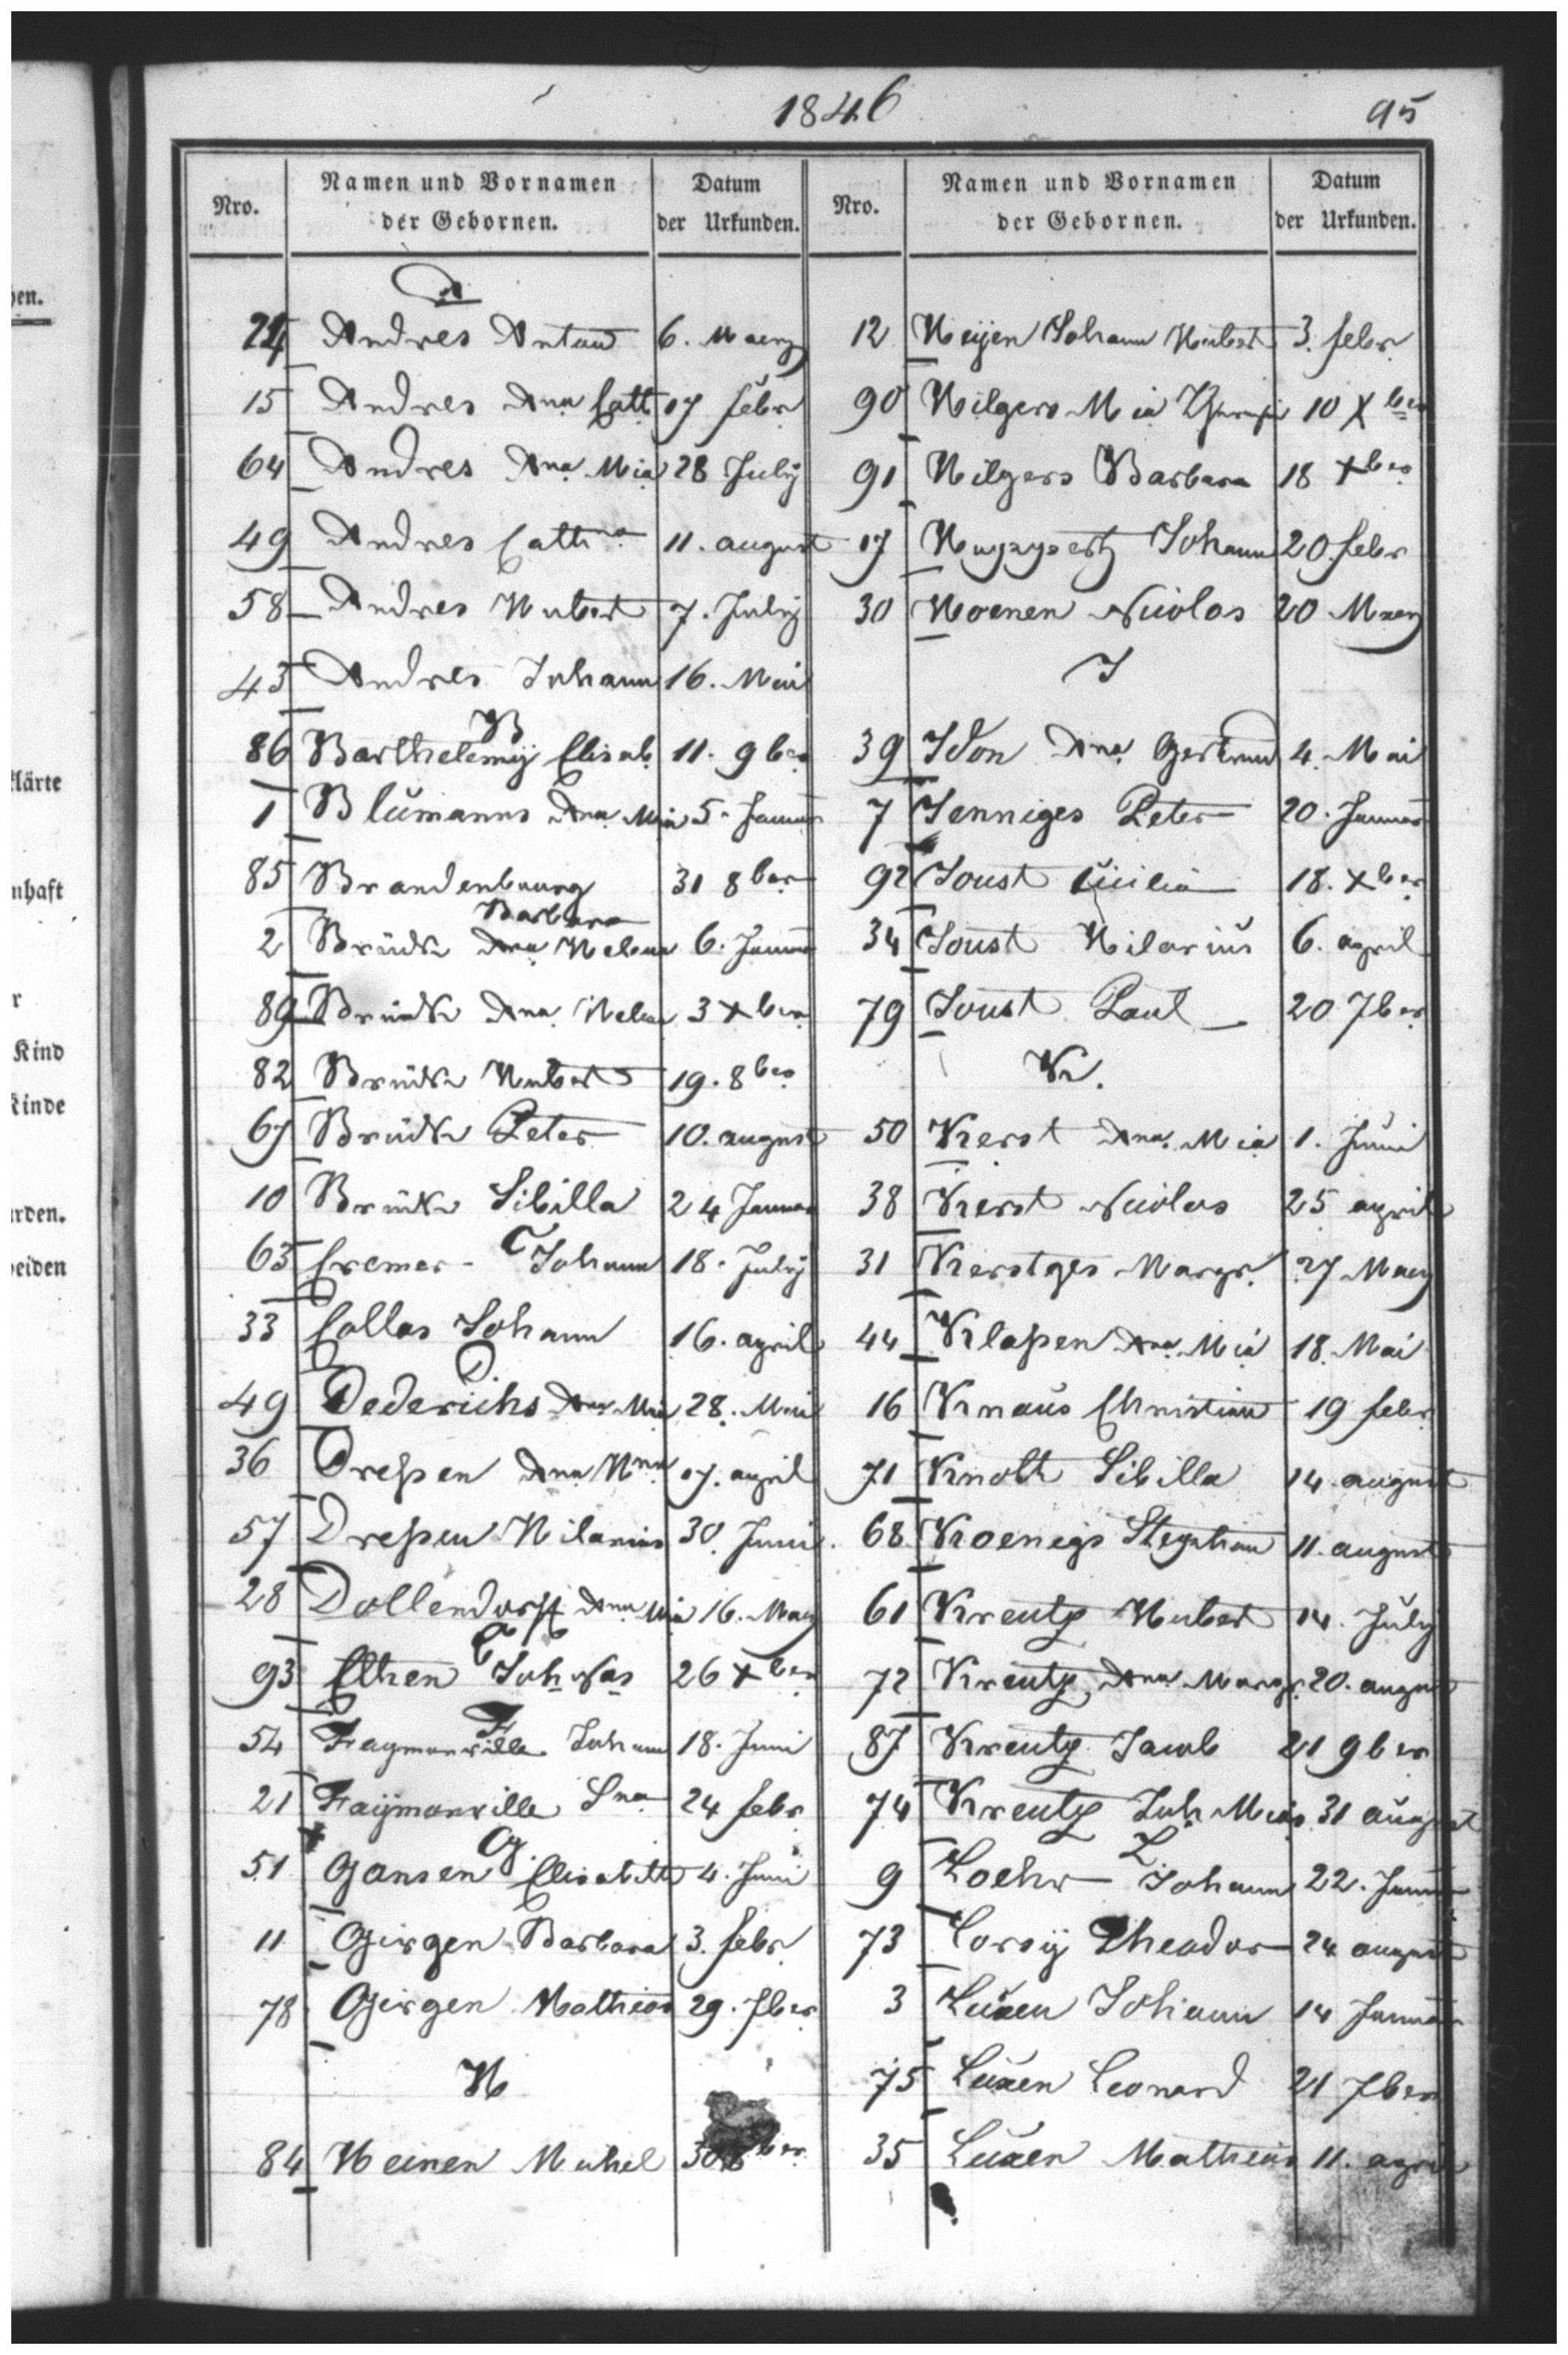 1846
95
Nro. Namen und Vornamen der Gebornen. Datum der Urkunden.
A
24 Andres Anton 6. Maerz
15 Andres Ana Cath 17 febr
64 Andres Ana Mia 28 July
49 Andres Cath 11. august
58 Andres Hubert 7. July
43 Andres Johann 16. Mai
B
86 Barthelemÿ Elisab. 11. 9ber
1 Blümanns Ana Mia 5. Januar
85 Brandenburg Barbara 31 8ber
2 Brück Ana Helena 6. Januar
89 Brück Ana Helena 3 Xber
82 Brück Hubert 19. 8ber
67 Brück Peter 10. august
10 Brück Sibilla 24 Januar
C
63 Cremer Johann 18. July
33 Collas Johann 16. april
D.
49 Dederichs Ana Mia 28. Mai
36 Dreßen Ana 17. april
57 Dreßen Hilarius 30. Juni
28 Dollendorff Ana Mia 16. Maerz
E
93 Elsen Joh 26 Xber
F
54 Faymonville Johann 18. Juni
21 Faÿmonville 24 febr
G.
51 Gansen Elisabeth 4. Juni
11 Girgen Barbara 3. febr
78 Girgen Mathias 29. 7ber
H
84 Heinen Michel 30 8ber
Nro. Namen und Vornamen der Gebornen. Datum der Urkunden.
12 Heÿen Johann Hubert 3. febr
90 Hilgers Mia 10 Xber
91 Hilgers Barbara 18 Xber
17 Huppertz Johann 20. febr
30 Hoenen Nicolas 20 Maerz
I
39 Idon Ana Gertrud 4. Mai
7 Jenniges Peter 20. Januar
92 Joust Cicilia 18. Xber
34 Joust Hilarius 6. april
79 Joust Paul 20 7ber
K.
50 Kerst Ana. Mia 1. Juni
38 Kerst Nicolas 25 april
31 Kerstges Margr. 27 Maerz
44 Klaßen Ana Mia 18. Mai
16 Knaus Christian 19 febr
71 Knoth Sibilla 14. august
68 Koenigs Stephan 11. august
61 Kreutz Hubert 14. July
72 Kreutz Ana Margr. 20. august
87 Kreutz Jacob 21 9ber
74 Kreutz Joh Mias 31 august
L
9 Loehr Johann 22. Januar
73 Lorsÿ Theodor 24 august
3 Lüxen Johann 14 Januar
75 Lüxen Leonard 21 7ber
35 Lüxen Mathias 11. april
en.
lärte
nhaft
r
Kind
Kinde
rden.
eiden